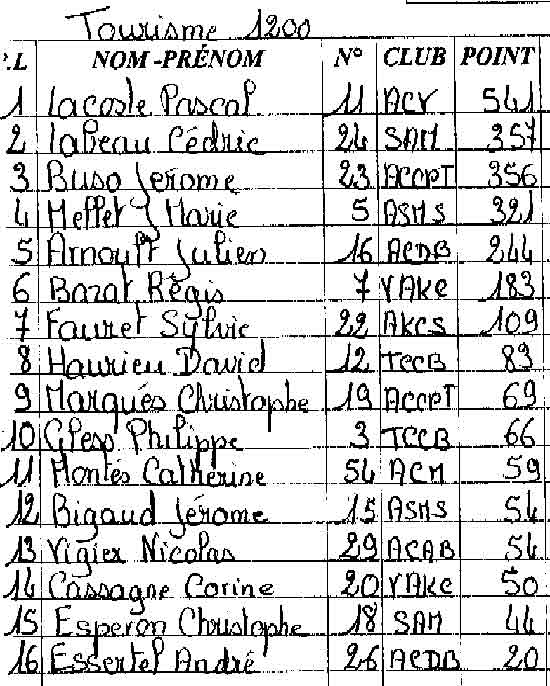 Tourisme 1200
P.L NOM-PRÉNOM N° CLUB POINT
1 Lacoste Pascal 11 ACV 541
2 Labeau Cédric 24 SAM 357
3 Buso Jerome 23 ACCPT 356
4 Meffet J Marie 5 ASMS 321
5 Arnoult Julien 16 ACDB 244
6 Bozat Régis 7 YAKC 183
7 Fauret Sylvie 22 AKCS 109
8 Haurieu David 12 TCCB 83
9 Marqués Christophe 19 ACCPT 69
10 Gless Philippe 3 TCCB 66
11 Montés Catherine 54 ACM 59
12 Bigaud Jérome 15 ASMS 54
13 Vigier Nicolas 29 ACAB 54
14 Cassagne Corine 20 YAKC 50
15 Esperon Christophe 18 SAM 44
16 Essertel André 26 ACDB 20